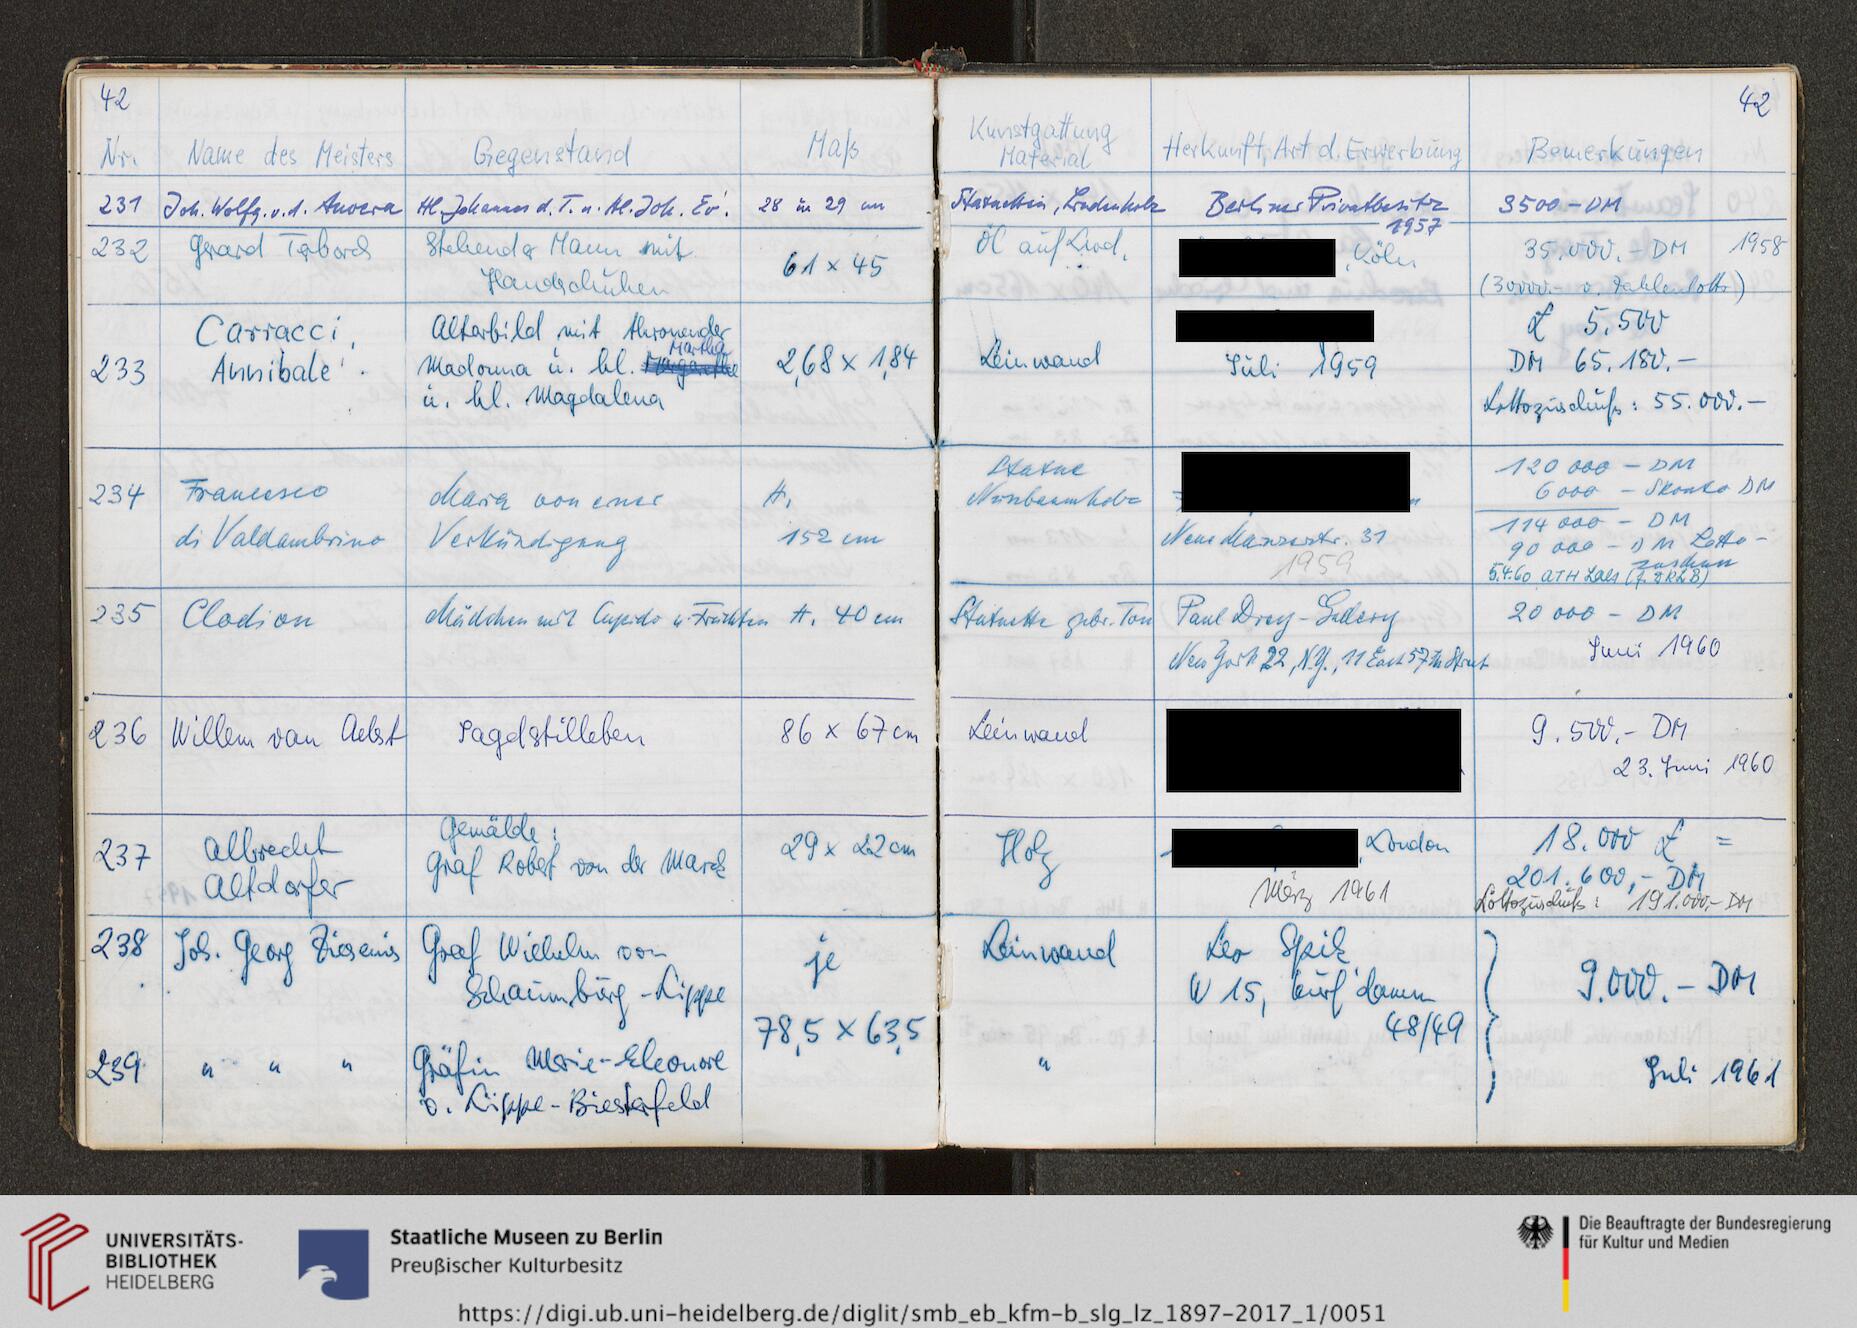 42
42
Nr. Name des Meisters Gegenstand Maß Kunstgattung Material Herkunft, Art d. Erwerbung Bemerkungen
231 Joh. Wolfg. v. d. Auvera Hl. Johannes d. T. u. Hl. Joh. Ev. 28 u 29 cm Statuetten, Lindenholz Berliner Privatbesitz 3500 – DM
1957
232 Gerard Terborch Stehender Mann mit 61 x 45 Öl auf Lwd. , Köln 35.000.- DM 1958
Handschuhen (30000.- v. Zahlenlotto)
Carracci, Altarbild mit thronender £ 5.500
Martha
233 Annibale Madonna u. hl. 2,68 x 1,84 Leinwand Juli 1959 DM 65.180.-
u. hl. Magdalena Lottozuschuß: 55.000.-
Statue 120 000 – DM
234 Francesco Maria von einer H. Nussbaumholz 6000 – Skonto DM
114 000 – DM
di Valdambrino Verkündigung 152 cm Neue Mainzerstr. 31 90 000 – DM Lotto-
1959 zuschuss
5.4.60
235 Clodion Mädchen mit Cupido u. Früchten H. 40 cm Statuette gebr. Ton Paul Drey-Gallery 20 000 – DM
New York 22, N.Y., 11 East 57th Street Juni 1960
236 Willem van Aelst Jagdstilleben 86 x 67 cm Leinwand 9.500.- DM
23. Juni 1960
Gemälde:
237 Albrecht Graf Robert von der Marck 29 x 22 cm Holz , London 18.000 £ =
Altdorfer März 1961 201.600,- DM
Lottozuschuß: 191.000.- DM
238 Joh. Georg Ziesenis Graf Wilhelm von je Leinwand Leo Spik
Schaumburg-Lippe W 15, Kurf'damm 9.000.- DM
78,5 x 63,5 48/49
239 " " " Gräfin Marie-Eleonore " Juli 1961
v. Lippe-Biesterfeld
UNIVERSITÄTS-
BIBLIOTHEK
HEIDELBERG
Staatliche Museen zu Berlin
Preußischer Kulturbesitz
Die Beauftragte der Bundesregierung
für Kultur und Medien
https://digi.ub.uni-heidelberg.de/diglit/smb_eb_kfm-b_slg_lz_1897-2017_1/0051